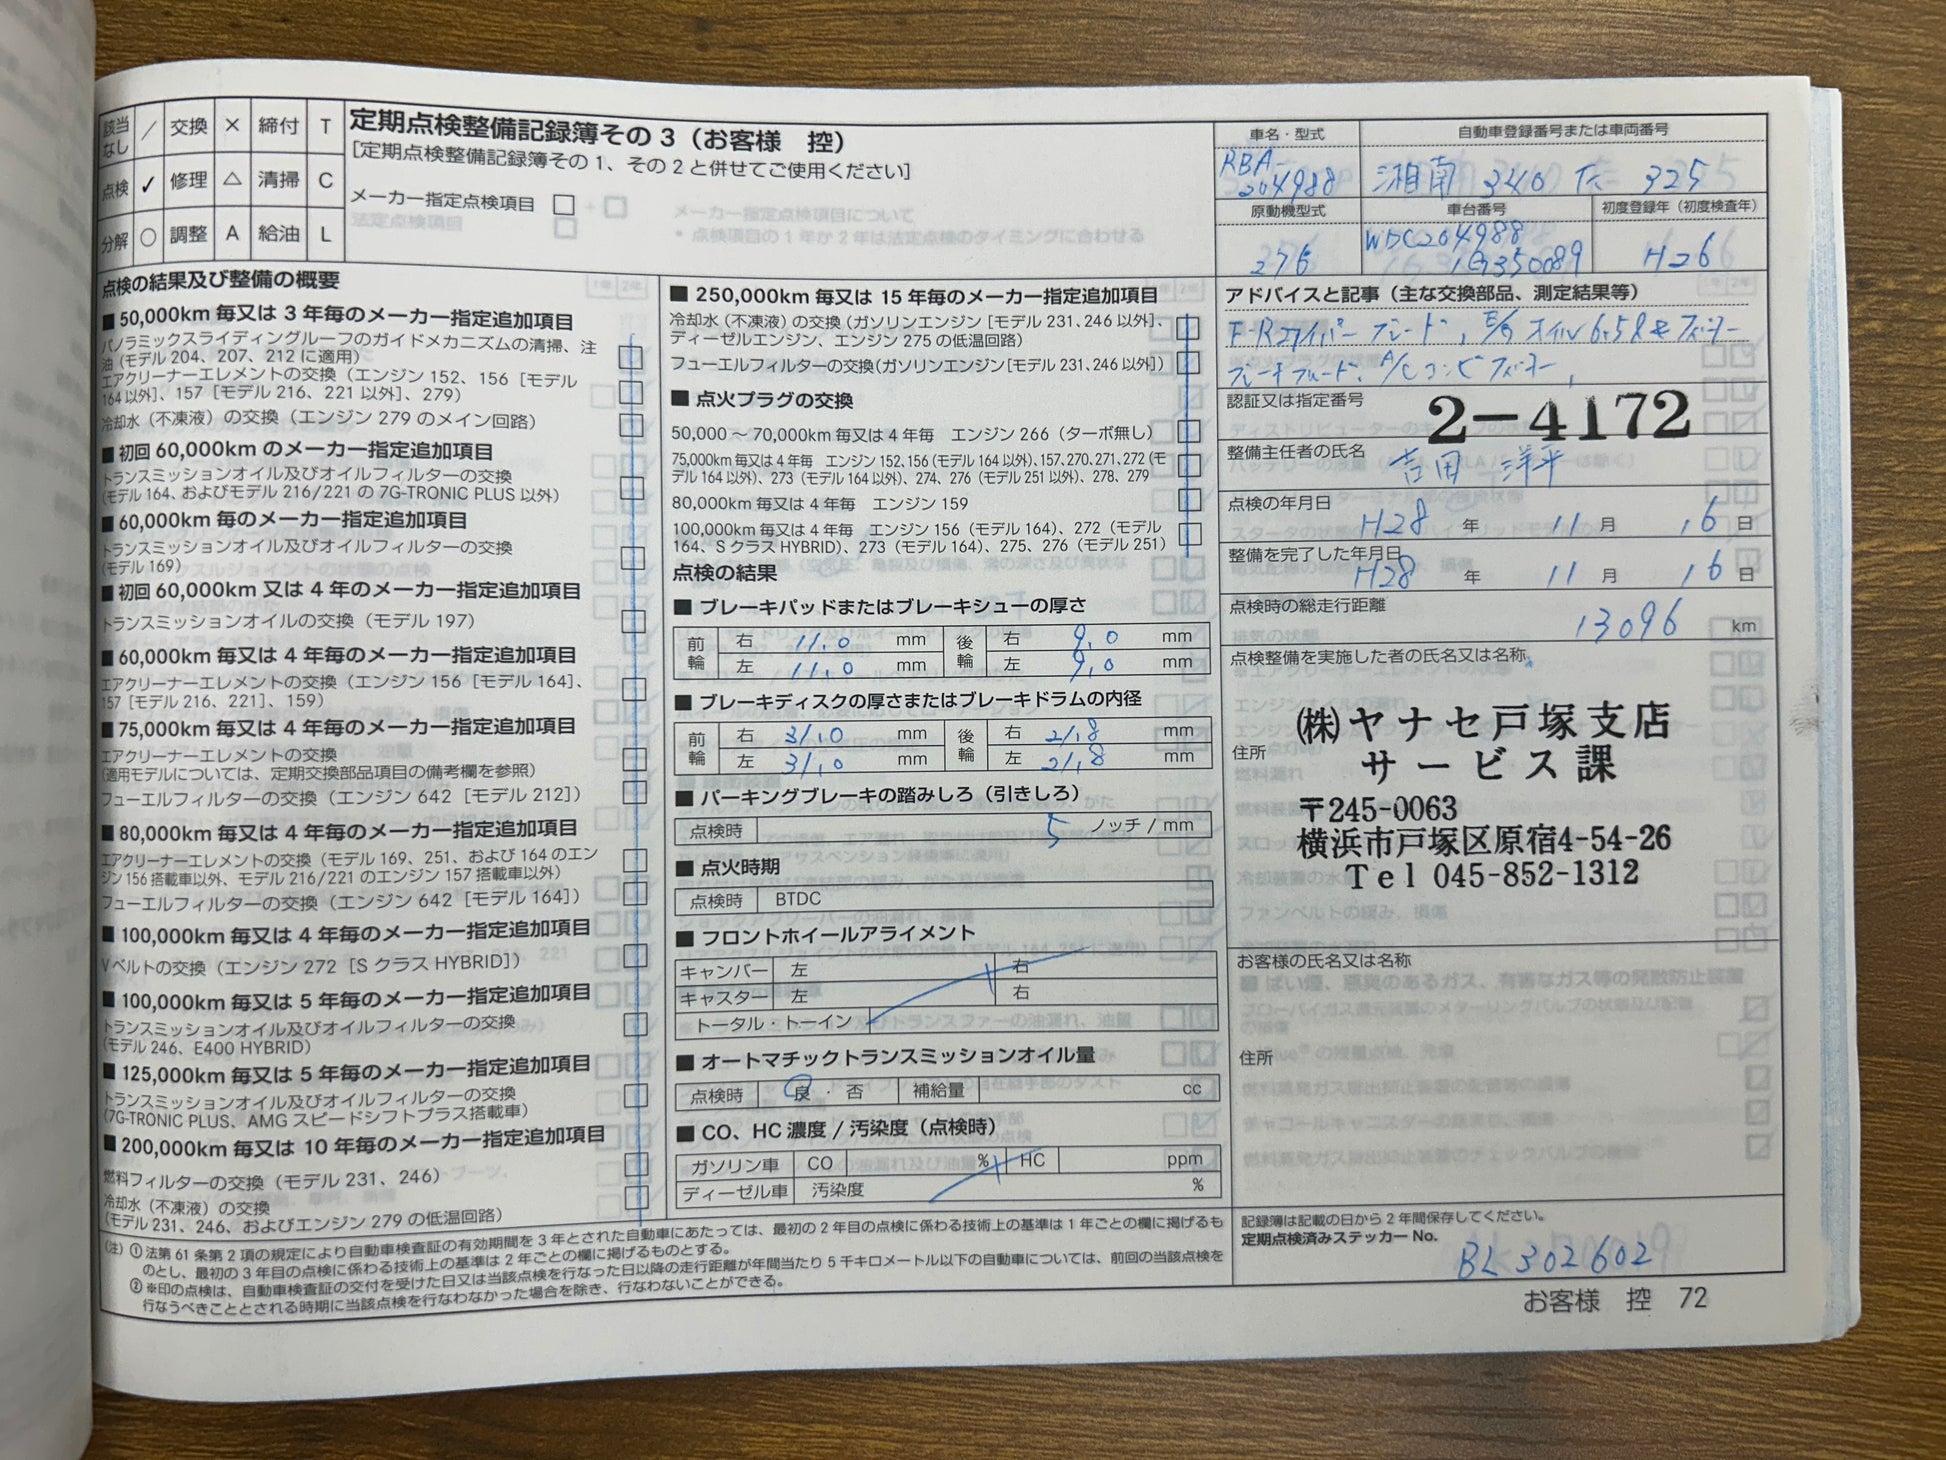 該当なし ／ 交換 × 締付 T
点検 ✓ 修理 △ 清掃 C
分解 ○ 調整 A 給油 L
定期点検整備記録簿その3（お客様 控）
[定期点検整備記録簿その1、その2と併せてご使用ください]
メーカー指定点検項目 □
点検の結果及び整備の概要
■50,000km 毎又は3年毎のメーカー指定追加項目
パノラミックスライディングルーフのガイドメカニズムの清掃、注
油（モデル 204、207、212 に適用）
エアクリーナーエレメントの交換（エンジン 152、156［モデル
164以外］、157［モデル 216、221 以外］、279）
冷却水（不凍液）の交換（エンジン 279 のメイン回路）
■初回 60,000km のメーカー指定追加項目
トランスミッションオイル及びオイルフィルターの交換
（モデル 164、およびモデル 216/221 の 7G-TRONIC PLUS 以外）
■60,000km 毎のメーカー指定追加項目
トランスミッションオイル及びオイルフィルターの交換
（モデル 169）
■初回 60,000km 又は4年毎のメーカー指定追加項目
トランスミッションオイルの交換（モデル 197）
■60,000km 毎又は4年毎のメーカー指定追加項目
エアクリーナーエレメントの交換（エンジン 156［モデル 164］、
157［モデル 216、221］、159）
■75,000km 毎又は4年毎のメーカー指定追加項目
エアクリーナーエレメントの交換
（適用モデルについては、定期交換部品項目の備考欄を参照）
フューエルフィルターの交換（エンジン 642［モデル 212］）
■80,000km 毎又は4年毎のメーカー指定追加項目
エアクリーナーエレメントの交換（モデル 169、251、および 164 のエン
ジン 156 搭載車以外、モデル 216/221 のエンジン 157 搭載車以外）
フューエルフィルターの交換（エンジン 642［モデル 164］）
■100,000km 毎又は4年毎のメーカー指定追加項目
Vベルトの交換（エンジン 272［S クラス HYBRID］）
■100,000km 毎又は5年毎のメーカー指定追加項目
トランスミッションオイル及びオイルフィルターの交換
（モデル 246、E400 HYBRID）
■125,000km 毎又は5年毎のメーカー指定追加項目
トランスミッションオイル及びオイルフィルターの交換
（7G-TRONIC PLUS、AMG スピードシフトプラス搭載車）
■200,000km 毎又は10年毎のメーカー指定追加項目
燃料フィルターの交換（モデル 231、246）
冷却水（不凍液）の交換
（モデル 231、246、およびエンジン 279 の低温回路）
■250,000km 毎又は15年毎のメーカー指定追加項目
冷却水（不凍液）の交換（ガソリンエンジン［モデル 231、246 以外］、
ディーゼルエンジン、エンジン 275 の低温回路）
フューエルフィルターの交換（ガソリンエンジン［モデル 231、246 以外］）
■点火プラグの交換
50,000～70,000km 毎又は4年毎 エンジン 266（ターボ無し）
75,000km 毎又は4年毎 エンジン 152、156（モデル 164 以外）、157、270、271、272（モ
デル 164 以外）、273（モデル 164 以外）、274、276（モデル 251 以外）、278、279
80,000km 毎又は4年毎 エンジン 159
100,000km 毎又は4年毎 エンジン 156（モデル 164）、272（モデル
164、S クラス HYBRID）、273（モデル 164）、275、276（モデル 251）
点検の結果
■ブレーキパッドまたはブレーキシューの厚さ
前輪 右 11.0 mm 後輪 右 9.0 mm
左 11.0 mm 左 9.0 mm
■ブレーキディスクの厚さまたはブレーキドラムの内径
前輪 右 31.0 mm 後輪 右 21.8 mm
左 31.0 mm 左 21.8 mm
■パーキングブレーキの踏みしろ（引きしろ）
点検時 5 ノッチ / mm
■点火時期
点検時 BTDC
■フロントホイールアライメント
キャンバー 左 右
キャスター 左 右
トータル・トーイン
■オートマチックトランスミッションオイル量
点検時 良・否 補給量 cc
■CO、HC 濃度 / 汚染度（点検時）
ガソリン車 CO % HC ppm
ディーゼル車 汚染度 %
車名・型式 自動車登録番号または車両番号
RBA-
204988 湘南 340 た 325
原動機型式 車台番号 初度登録年（初度検査年）
276 WDC204988
1G350089 H26
アドバイスと記事（主な交換部品、測定結果等）
F・Rワイパーブレード, E/G オイル 6.5ℓ & フィルター
ブレーキフルード, A/C コンビフィルター,
認証又は指定番号 2-4172
整備主任者の氏名 吉田 洋平
点検の年月日 H28 年 11 月 16 日
整備を完了した年月日 H28 年 11 月 16 日
点検時の総走行距離 13096 km
点検整備を実施した者の氏名又は名称
住所
㈱ヤナセ戸塚支店
サービス課
〒245-0063
横浜市戸塚区原宿4-54-26
Tel 045-852-1312
お客様の氏名又は名称
住所
記録簿は記載の日から2年間保存してください。
定期点検済みステッカー No.
BL 302602
（注）①法第61条第2項の規定により自動車検査証の有効期間を3年とされた自動車にあたっては、最初の2年目の点検に係わる技術上の基準は1年ごとの欄に掲げるも
のとし、最初の3年目の点検に係わる技術上の基準は2年ごとの欄に掲げるものとする。
②※印の点検は、自動車検査証の交付を受けた日又は当該点検を行なった日以降の走行距離が年間当たり5千キロメートル以下の自動車については、前回の当該点検を
行なうべきこととされる時期に当該点検を行なわなかった場合を除き、行なわないことができる。
お客様 控 72